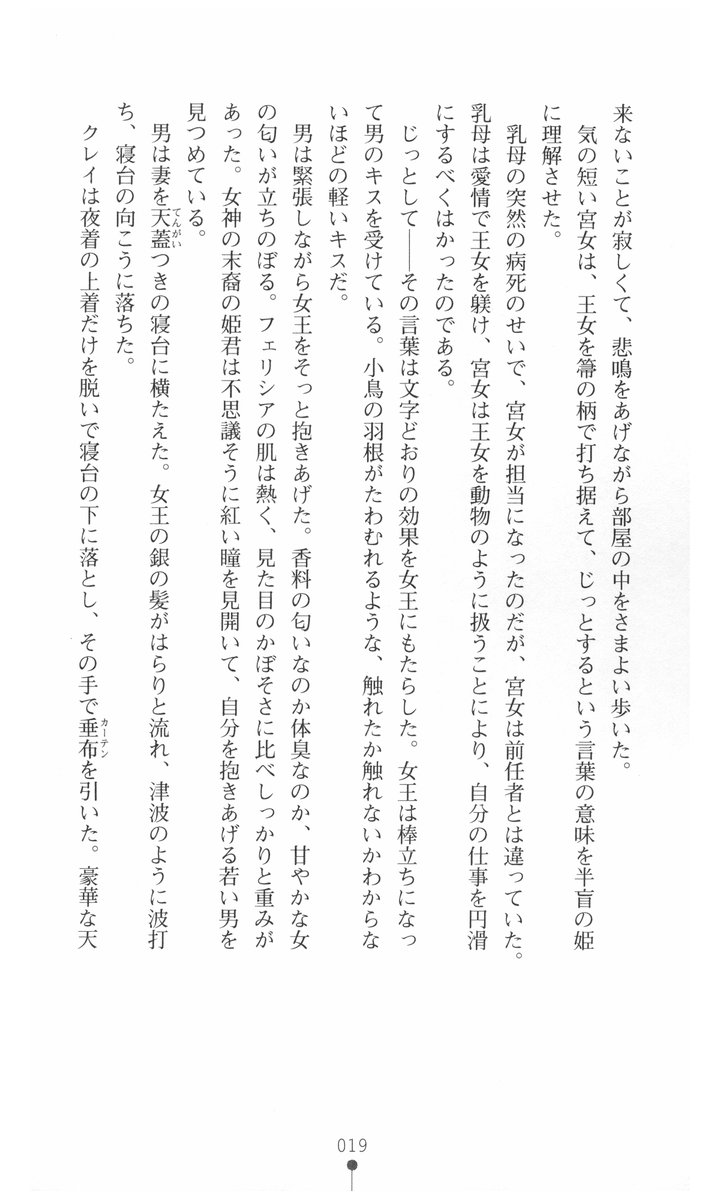 来ないことが寂しくて、悲鳴をあげながら部屋の中をさまよい歩いた。
気の短い宮女は、王女を箒の柄で打ち据えて、じっとするという言葉の意味を半盲の姫
に理解させた。
乳母の突然の病死のせいで、宮女が担当になったのだが、宮女は前任者とは違っていた。
乳母は愛情で王女を躾け、宮女は王女を動物のように扱うことにより、自分の仕事を円滑
にするべくはかったのである。
じっとして――その言葉は文字どおりの効果を女王にもたらした。女王は棒立ちになっ
て男のキスを受けている。小鳥の羽根がたわむれるような、触れたか触れないかわからな
いほどの軽いキスだ。
男は緊張しながら女王をそっと抱きあげた。香料の匂いなのか体臭なのか、甘やかな女
の匂いが立ちのぼる。フェリシアの肌は熱く、見た目のかぼそさに比べしっかりと重みが
あった。女神の末裔の姫君は不思議そうに紅い瞳を見開いて、自分を抱きあげる若い男を
見つめている。
男は妻を天蓋てんがいつきの寝台に横たえた。女王の銀の髪がはらりと流れ、津波のように波打
ち、寝台の向こうに落ちた。
クレイは夜着の上着だけを脱いで寝台の下に落とし、その手で垂布カーテンを引いた。豪華な天
019